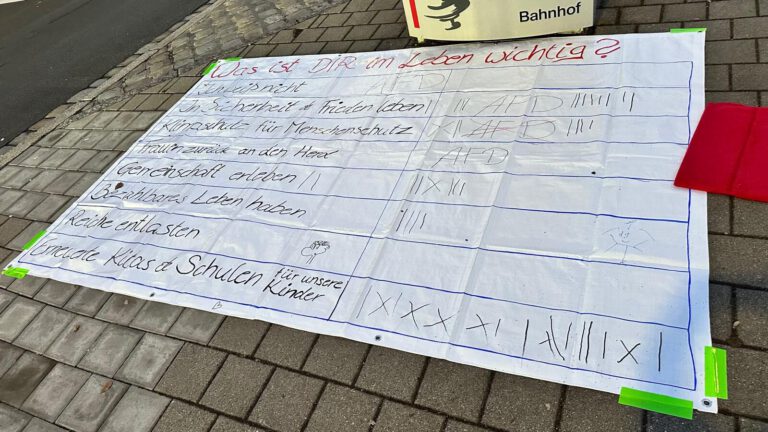 Bahnhof
Was ist DIR im Leben wichtig?
AFD
In Sicherheit & Frieden leben AFD
Klimaschutz für Menschenschutz AFD
Frauen zurück an den Herd AFD
Gemeinschaft erleben
Bezahlbares Leben haben
Reiche entlasten
Erneuete Kitas & Schulen für unsere
Kinder